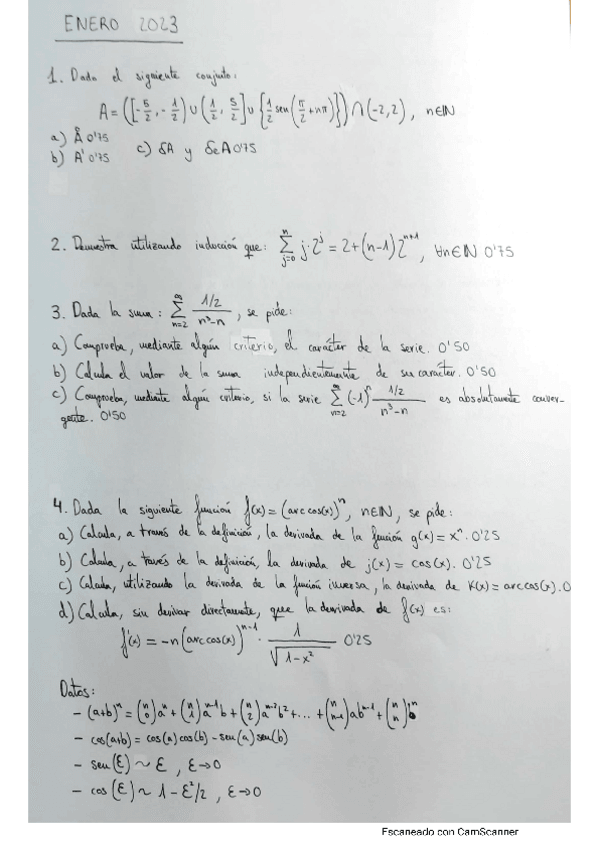 ENERO 2023
1. Dado el siguiente conjunto:
A = ([-5/2, -1/2) ∪ (1/2, 5/2] ∪ {1/2 sen(π/2 + nπ)}) ∩ (-2,2), n∈ℕ
a) Å 0'75
b) A' 0'75 c) δA y δeA 0'75
2. Demuestra utilizando inducción que: ∑_{j=0}^{n} j·2^j = 2+(n-1)2^{n+1}, ∀n∈ℕ 0'75
3. Dada la suma: ∑_{n=2}^{∞} (1/2)/(n³-n), se pide:
a) Comprueba, mediante algún criterio, el carácter de la serie. 0'50
b) Calcula el valor de la suma independientemente de su carácter. 0'50
c) Comprueba, mediante algún criterio, si la serie ∑_{n=2}^{∞} (-1)^n (1/2)/(n³-n) es absolutamente conver-
gente. 0'50
4. Dada la siguiente función f(x)=(arccos(x))^n, n∈ℕ, se pide:
a) Calcula, a través de la definición, la derivada de la función g(x)=x^n. 0'25
b) Calcula, a través de la definición, la derivada de j(x)=cos(x). 0'25
c) Calcula, utilizando la derivada de la función inversa, la derivada de K(x)=arccos(x). 0
d) Calcula, sin derivar directamente, que la derivada de f(x) es:
f'(x) = -n(arccos(x))^{n-1} · 1/√(1-x²) 0'25
Datos:
- (a+b)^n = (n 0)a^n + (n 1)a^{n-1}b + (n 2)a^{n-2}b² + ... + (n n-1)ab^{n-1} + (n n)b^n
- cos(a+b) = cos(a)cos(b) - sen(a)sen(b)
- sen(ε) ~ ε, ε→0
- cos(ε) ~ 1-ε²/2, ε→0
Escaneado con CamScanner